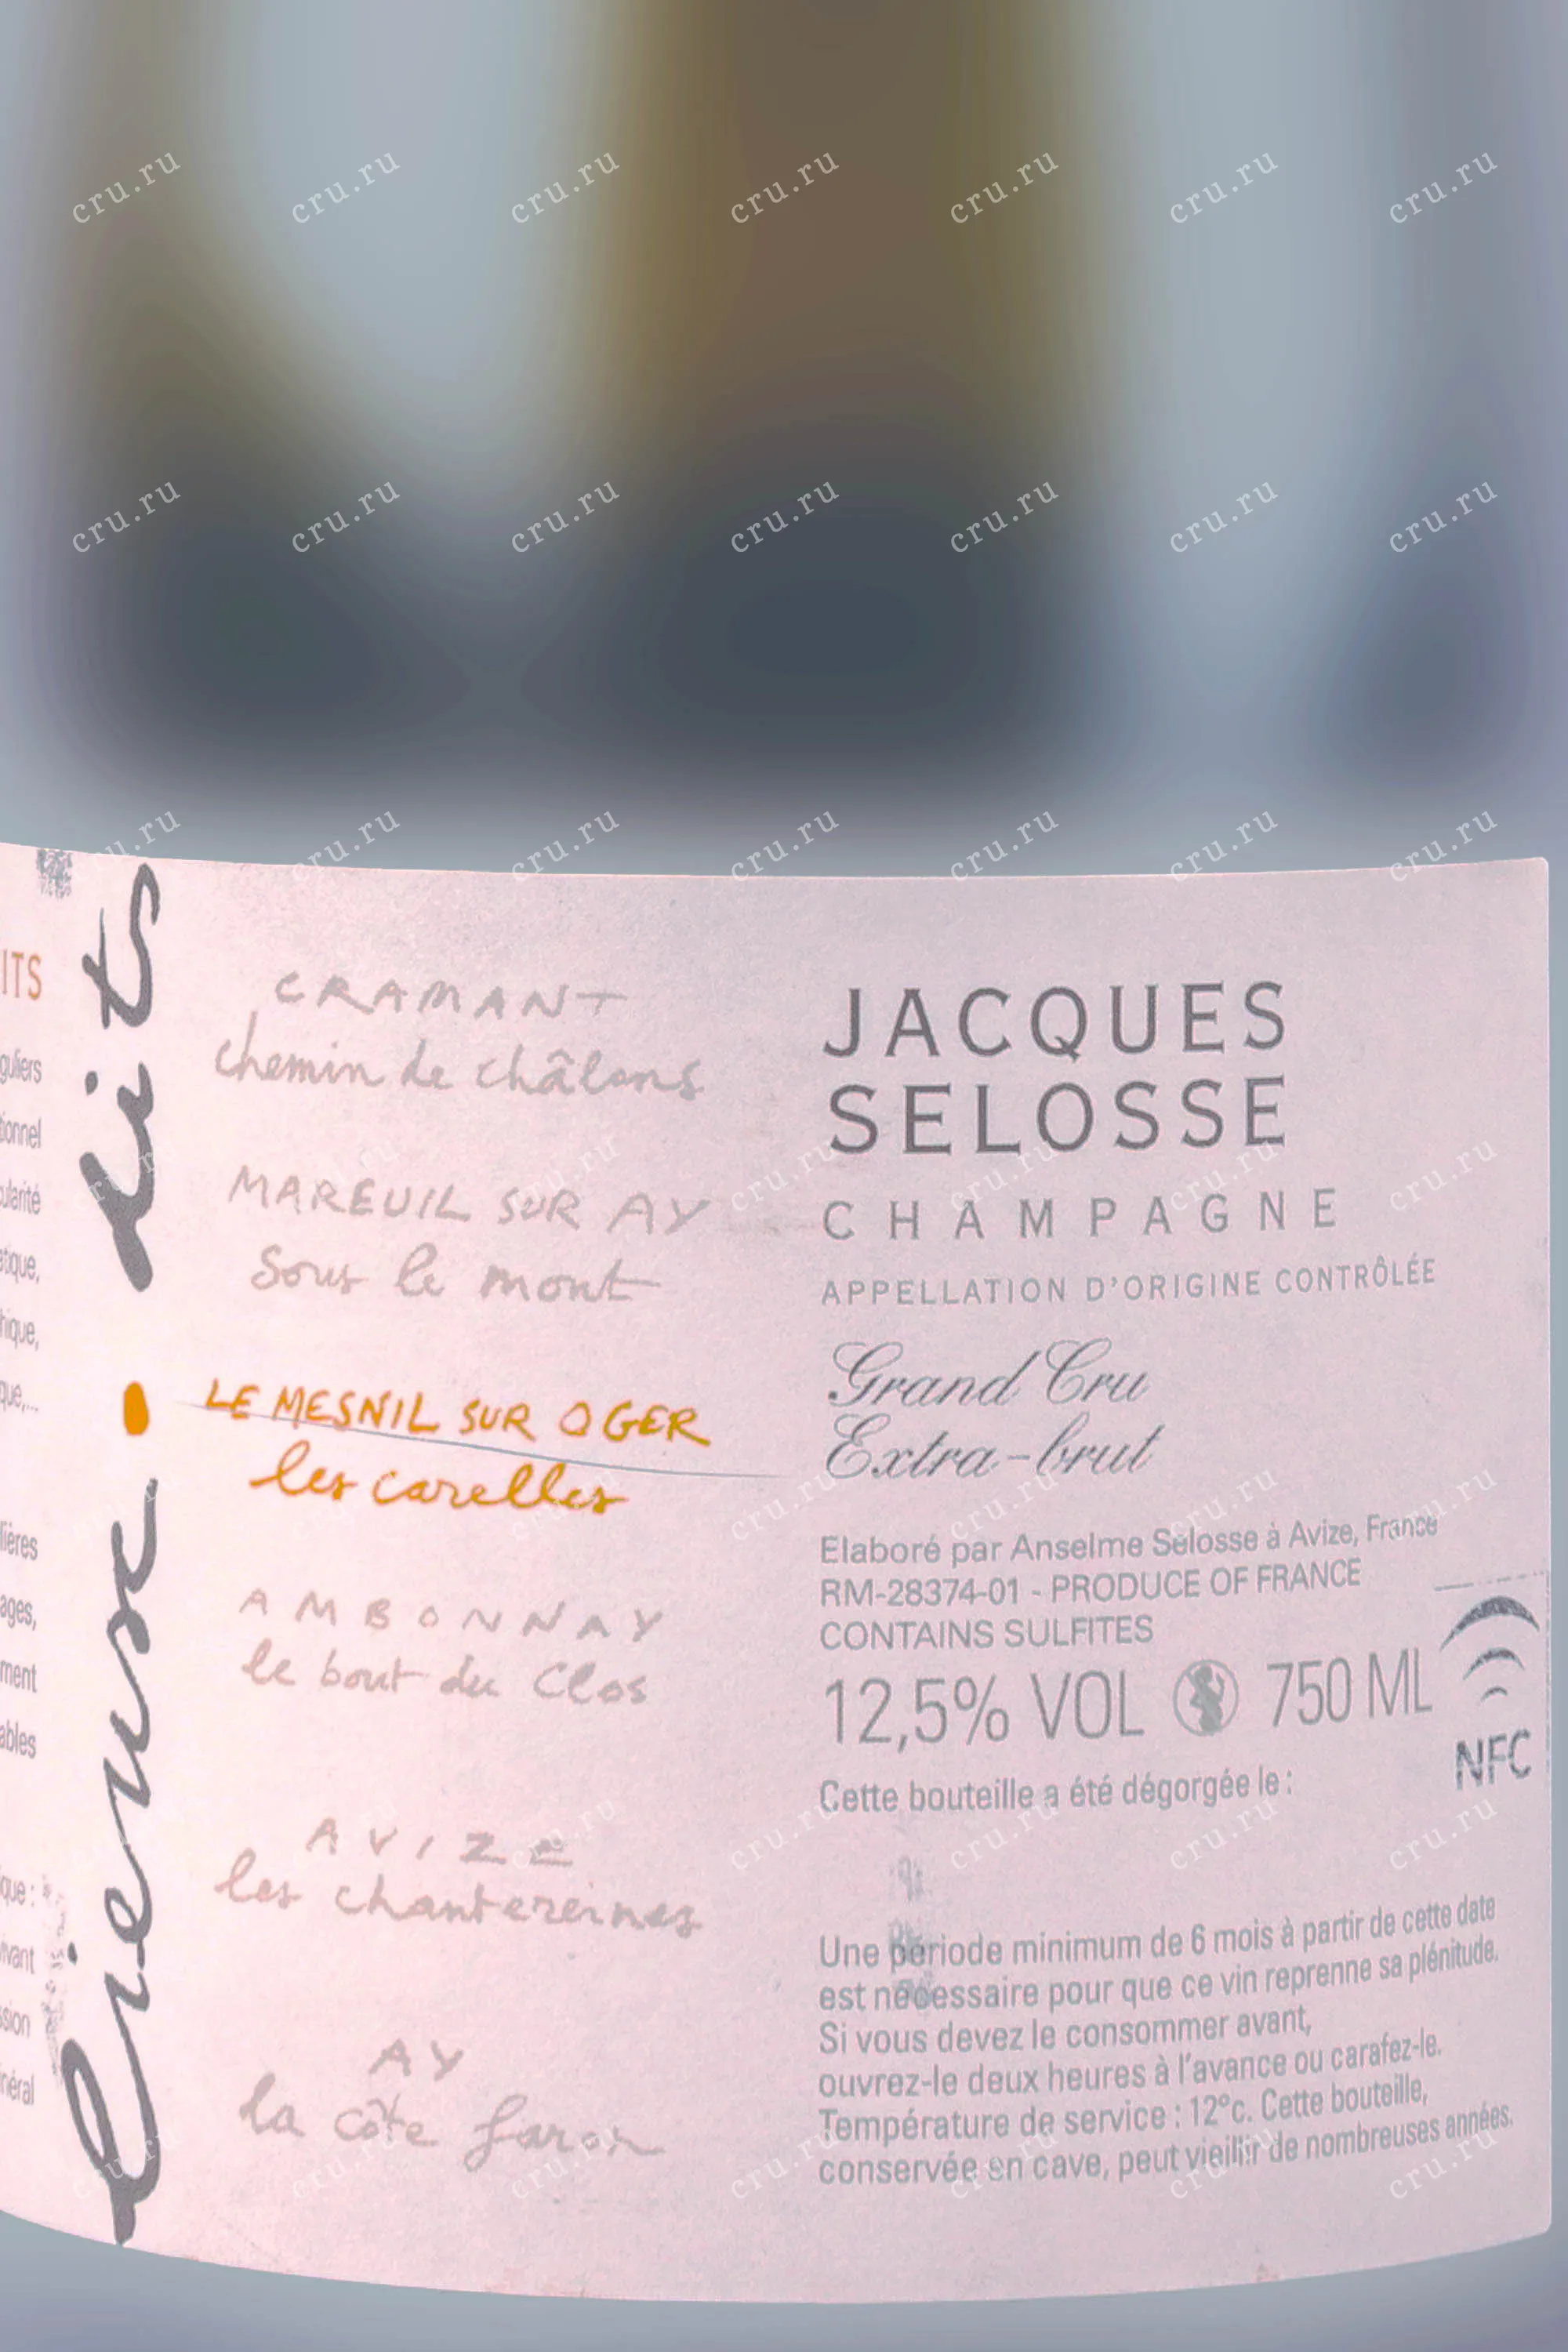 ITS
guliers
ionnel
ularité
tique,
hique,
que,...
lières
ages,
ment
ables
que :
vivant
ssion
néral
lieux dits
CRAMANT
chemin de châlons
MAREUIL SUR AY
sous le mont
LE MESNIL SUR OGER
les carelles
AMBONNAY
le bout du Clos
AVIZE
les chantereines
AY
la côte faron
JACQUES
SELOSSE
CHAMPAGNE
APPELLATION D'ORIGINE CONTRÔLÉE
Grand Cru
Extra-brut
Elaboré par Anselme Selosse à Avize, France
RM-28374-01 - PRODUCE OF FRANCE
CONTAINS SULFITES
12,5% VOL 750 ML
NFC
Cette bouteille a été dégorgée le :
Une période minimum de 6 mois à partir de cette date
est nécessaire pour que ce vin reprenne sa plénitude.
Si vous devez le consommer avant,
ouvrez-le deux heures à l'avance ou carafez-le.
Température de service : 12°c. Cette bouteille,
conservée en cave, peut vieillir de nombreuses années.
cru.ru